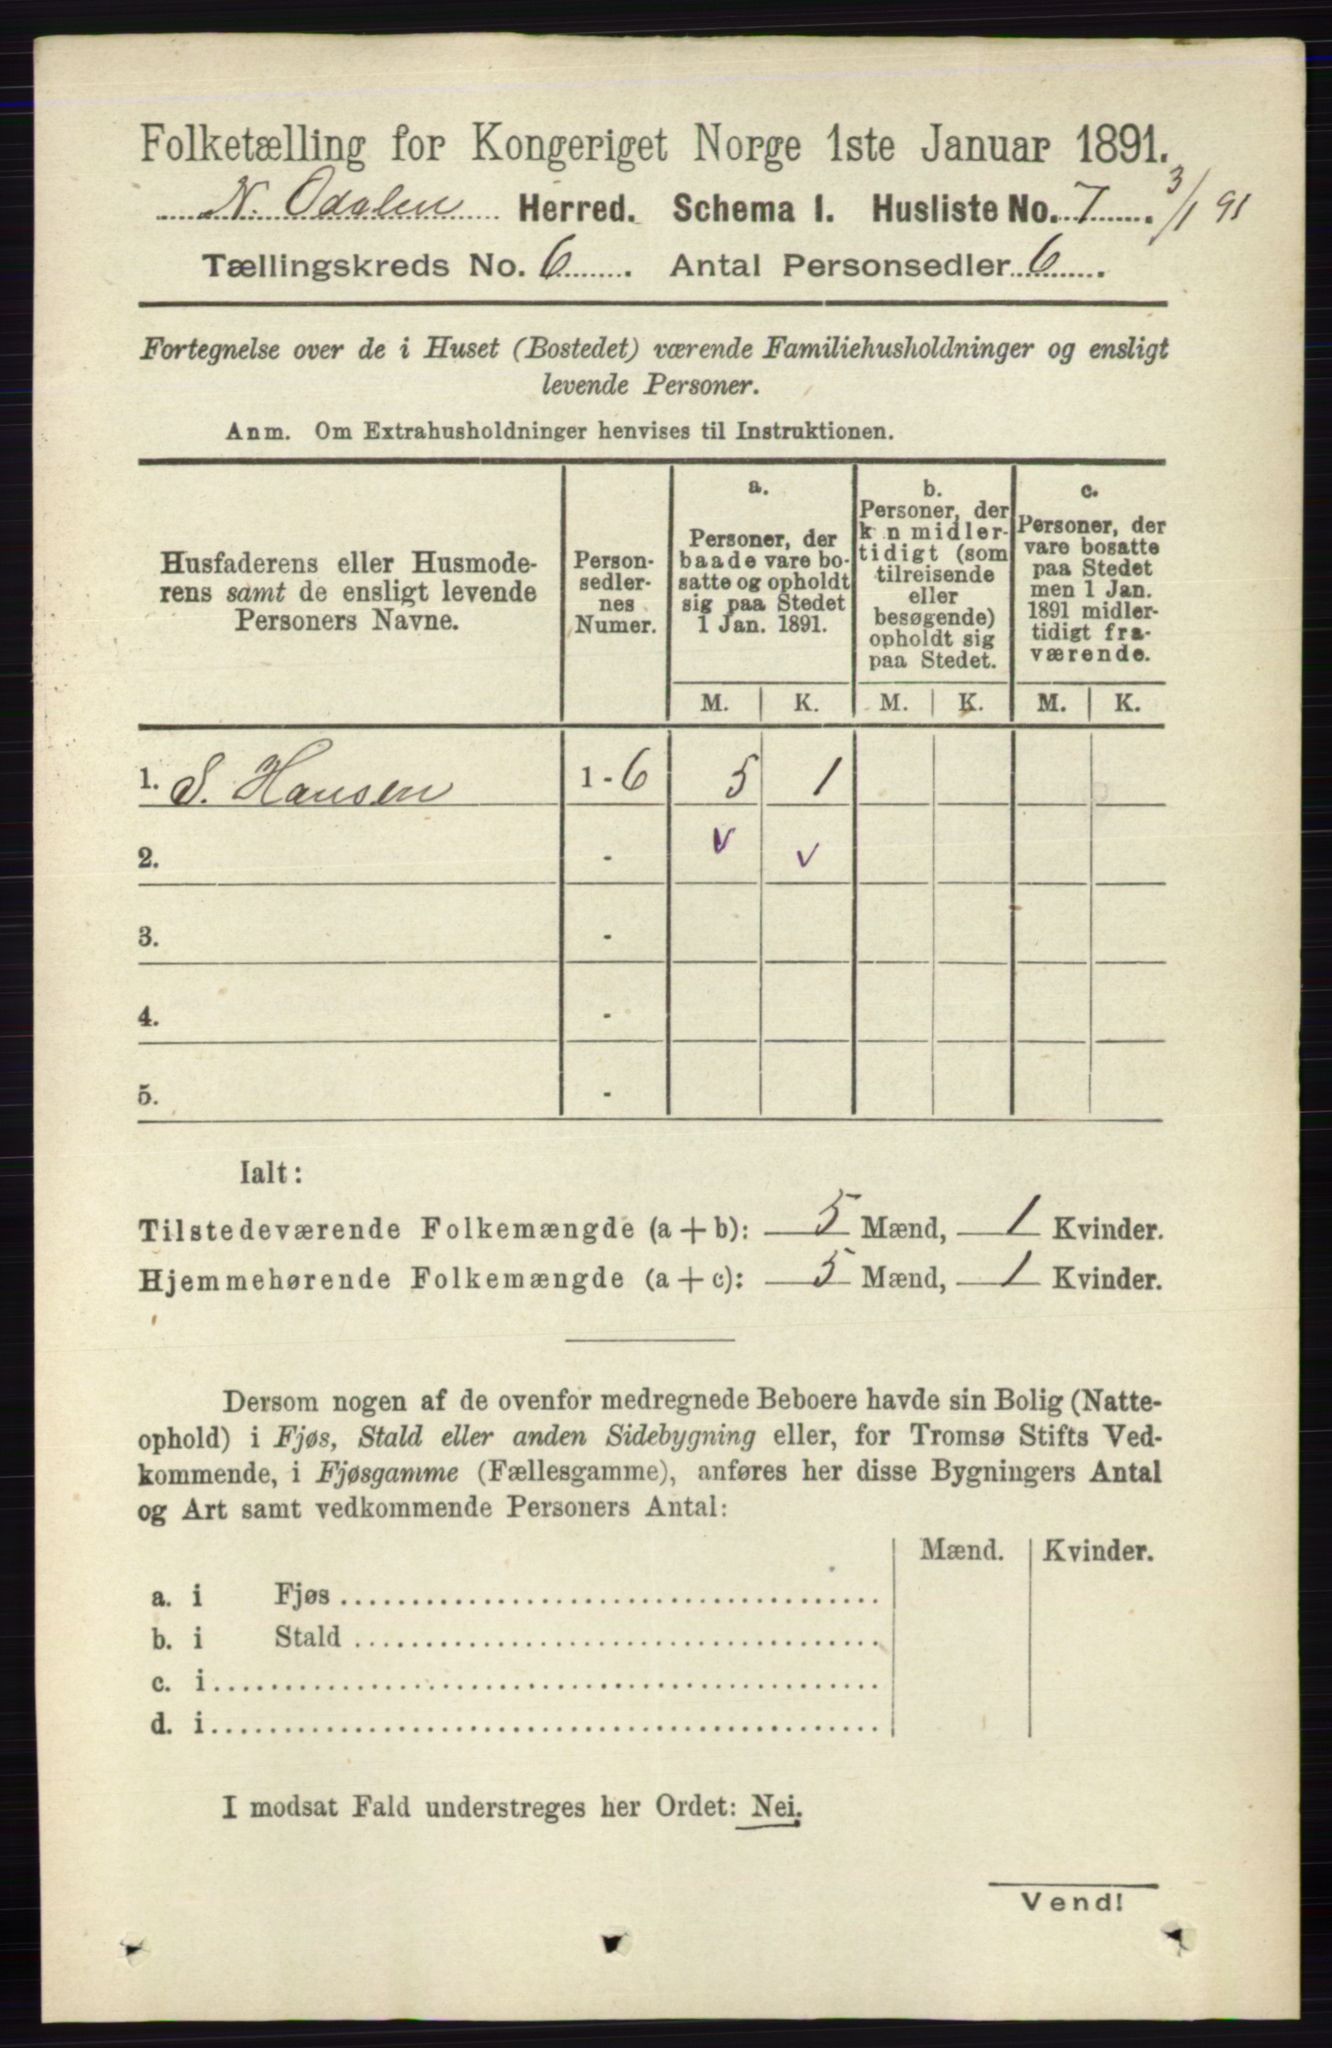 Folketælling for Kongeriget Norge 1ste Januar 1891.
N. Odalen Herred. Schema I. Husliste No. 7. 3/1 91
Tællingskreds No. 6. Antal Personsedler 6.
Fortegnelse over de i Huset (Bostedet) værende Familiehusholdninger og ensligt
levende Personer.
Anm. Om Extrahusholdninger henvises til Instruktionen.
Husfaderens eller Husmode-
rens samt de ensligt levende
Personers Navne.
Person-
sedler-
nes
Numer.
a.
Personer, der
baade vare bo-
satte og opholdt
sig paa Stedet
1 Jan. 1891.
b.
Personer, der
k n midler-
tidigt (som
tilreisende
eller
besøgende)
opholdt sig
paa Stedet.
c.
Personer, der
vare bosatte
paa Stedet
men 1 Jan.
1891 midler-
tidigt fra-
værende.
M. K. M. K. M. K.
1. S. Hansen 1 - 6 5 1
2. - v v
3. -
4. -
5. -
Ialt:
Tilstedeværende Folkemængde (a + b): 5 Mænd, 1 Kvinder.
Hjemmehørende Folkemængde (a + c): 5 Mænd, 1 Kvinder.
Dersom nogen af de ovenfor medregnede Beboere havde sin Bolig (Natte-
ophold) i Fjøs, Stald eller anden Sidebygning eller, for Tromsø Stifts Ved-
kommende, i Fjøsgamme (Fællesgamme), anføres her disse Bygningers Antal
og Art samt vedkommende Personers Antal:
Mænd. Kvinder.
a. i Fjøs
b. i Stald
c. i
d. i
I modsat Fald understreges her Ordet: Nei.
Vend!